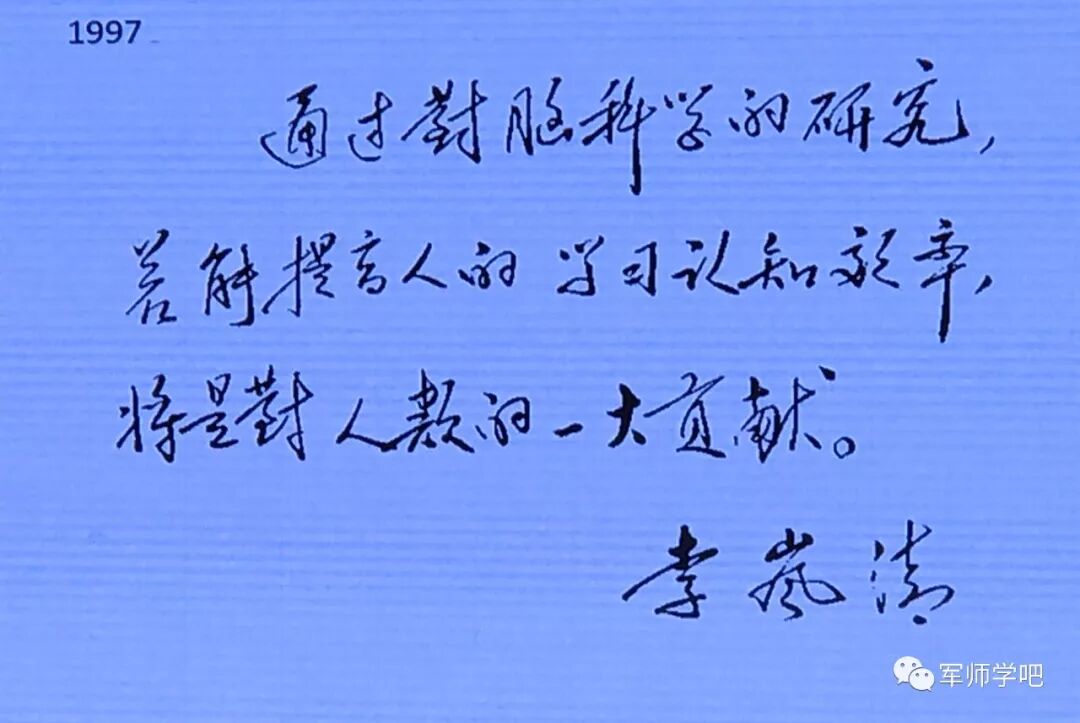 1997
通过對脑科学的研究，
若能提高人的学习认知效率，
将是對人类的一大贡献。
李岚清
军师学吧